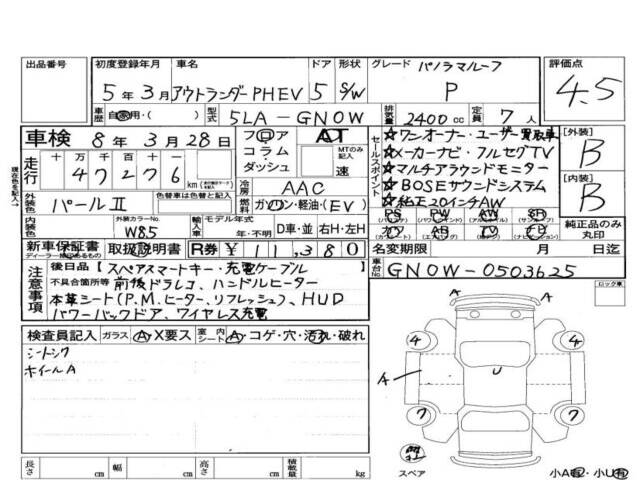 出品番号 初度登録年月 車名 ドア 形状 グレード パノラマルーフ 評価点
5年3月 アウトランダーPHEV 5 S/W P 4.5
車歴 自家用・( ) 型式 5LA-GN0W 排気量 2400cc 定員 7人
車検 8年3月28日 フロア AT セールスポイント ☆ワンオーナー・ユーザー買取車 [外装]
走行 十 万 千 百 十 一 コラム MTのみ記入 ☆メーカーナビ・フルセグTV B
47276 km ダッシュ 速 ☆マルチアラウンドモニター
現在色を記入→ 外装色 パールⅡ 色替車は色替前色 冷房 AAC ☆BOSEサウンドシステム [内装]
燃料 ガソリン・軽油・(EV) ☆純正20インチAW B
内装色 外装カラーNo. W85 輸入車 モデル年式 年・不明 D車・並 右H・左H PS PW AW SR 純正品のみ丸印
カワ AB TV ナビ
新車保証書 取扱説明書 R券 ¥11,380 名変期限 月 日迄
ディーラー印のあるもの
注意事項 後日品[スペアスマートキー・充電ケーブル] 車台No. GN0W-0503625
不具合箇所等 前後ドラレコ、ハンドルヒーター ロック車
本革シート(P.M.ヒーター、リフレッシュ)、HUD
パワーバックドア、ワイヤレス充電
検査員記入 ガラス A・X要ス 室内シート A・コゲ・穴・汚れ・破れ
シートシワ
ホイールA
A A
4 4
A U
7 7
スペア 小A有・小U有
長さ cm 幅 cm 高さ cm 積載量 kg